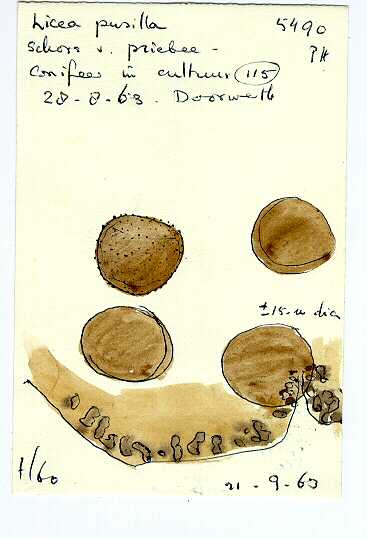 Licea pusilla 5490
schors v. priebee - PH
conifeer in cultuur 115
28-8-63. Doorwerth
±15 µ dia
H/60 21-9-63